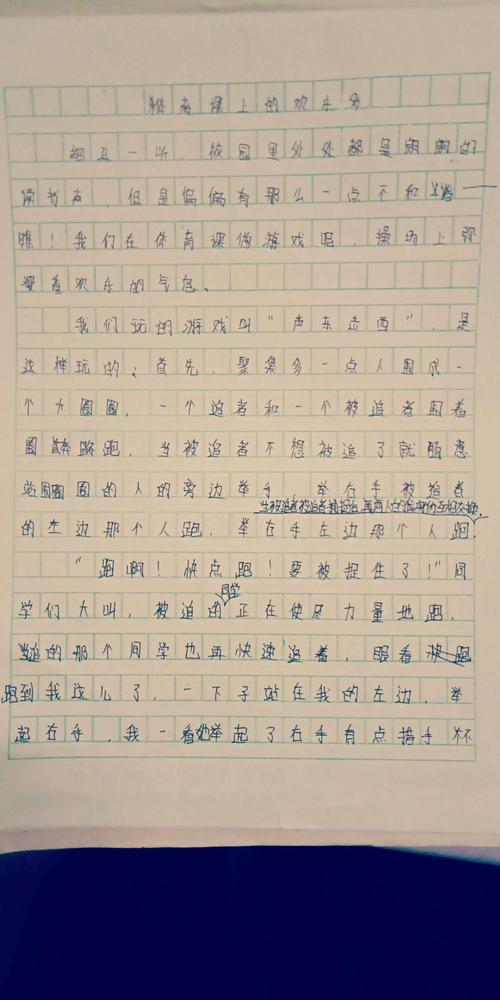 体育课上的欢乐多
细耳一听，校园里处处都是朗朗的
读书声，但是偏偏有那么一点不和谐——
瞧！我们在体育课做游戏呢，操场上弥
漫着欢乐的气息。
我们玩的游戏叫"声东击西"，是
这样玩的：首先，聚集多一点人围成一
个大圈圈，一个追者和一个被追者围着
圈跑，当被追者不想被追了就随意
站圈的人的旁边举手，举右手被追者
当被追者被追者捉起后，两人的身份互相交换。
的左边那个人跑，举右手左边那个人跑，
"跑啊！快点跑！要被捉住了！"同
学们大叫，被追的同学正在使尽力量地跑，
追的那个同学也再快速追着，眼看
跑到我这儿了，一下子站在我的左边，举
起右手，我一看她举起了右手有点措手不